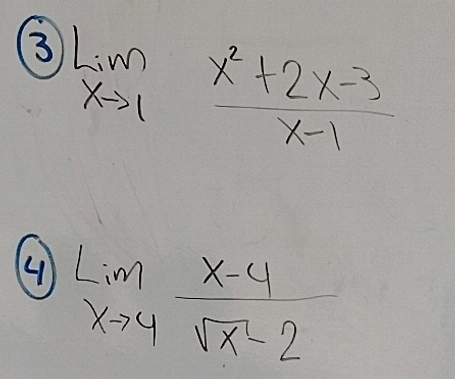 ③ Lim x²+2x-3
x→1 x-1
④ Lim x-4
x→4 √x-2